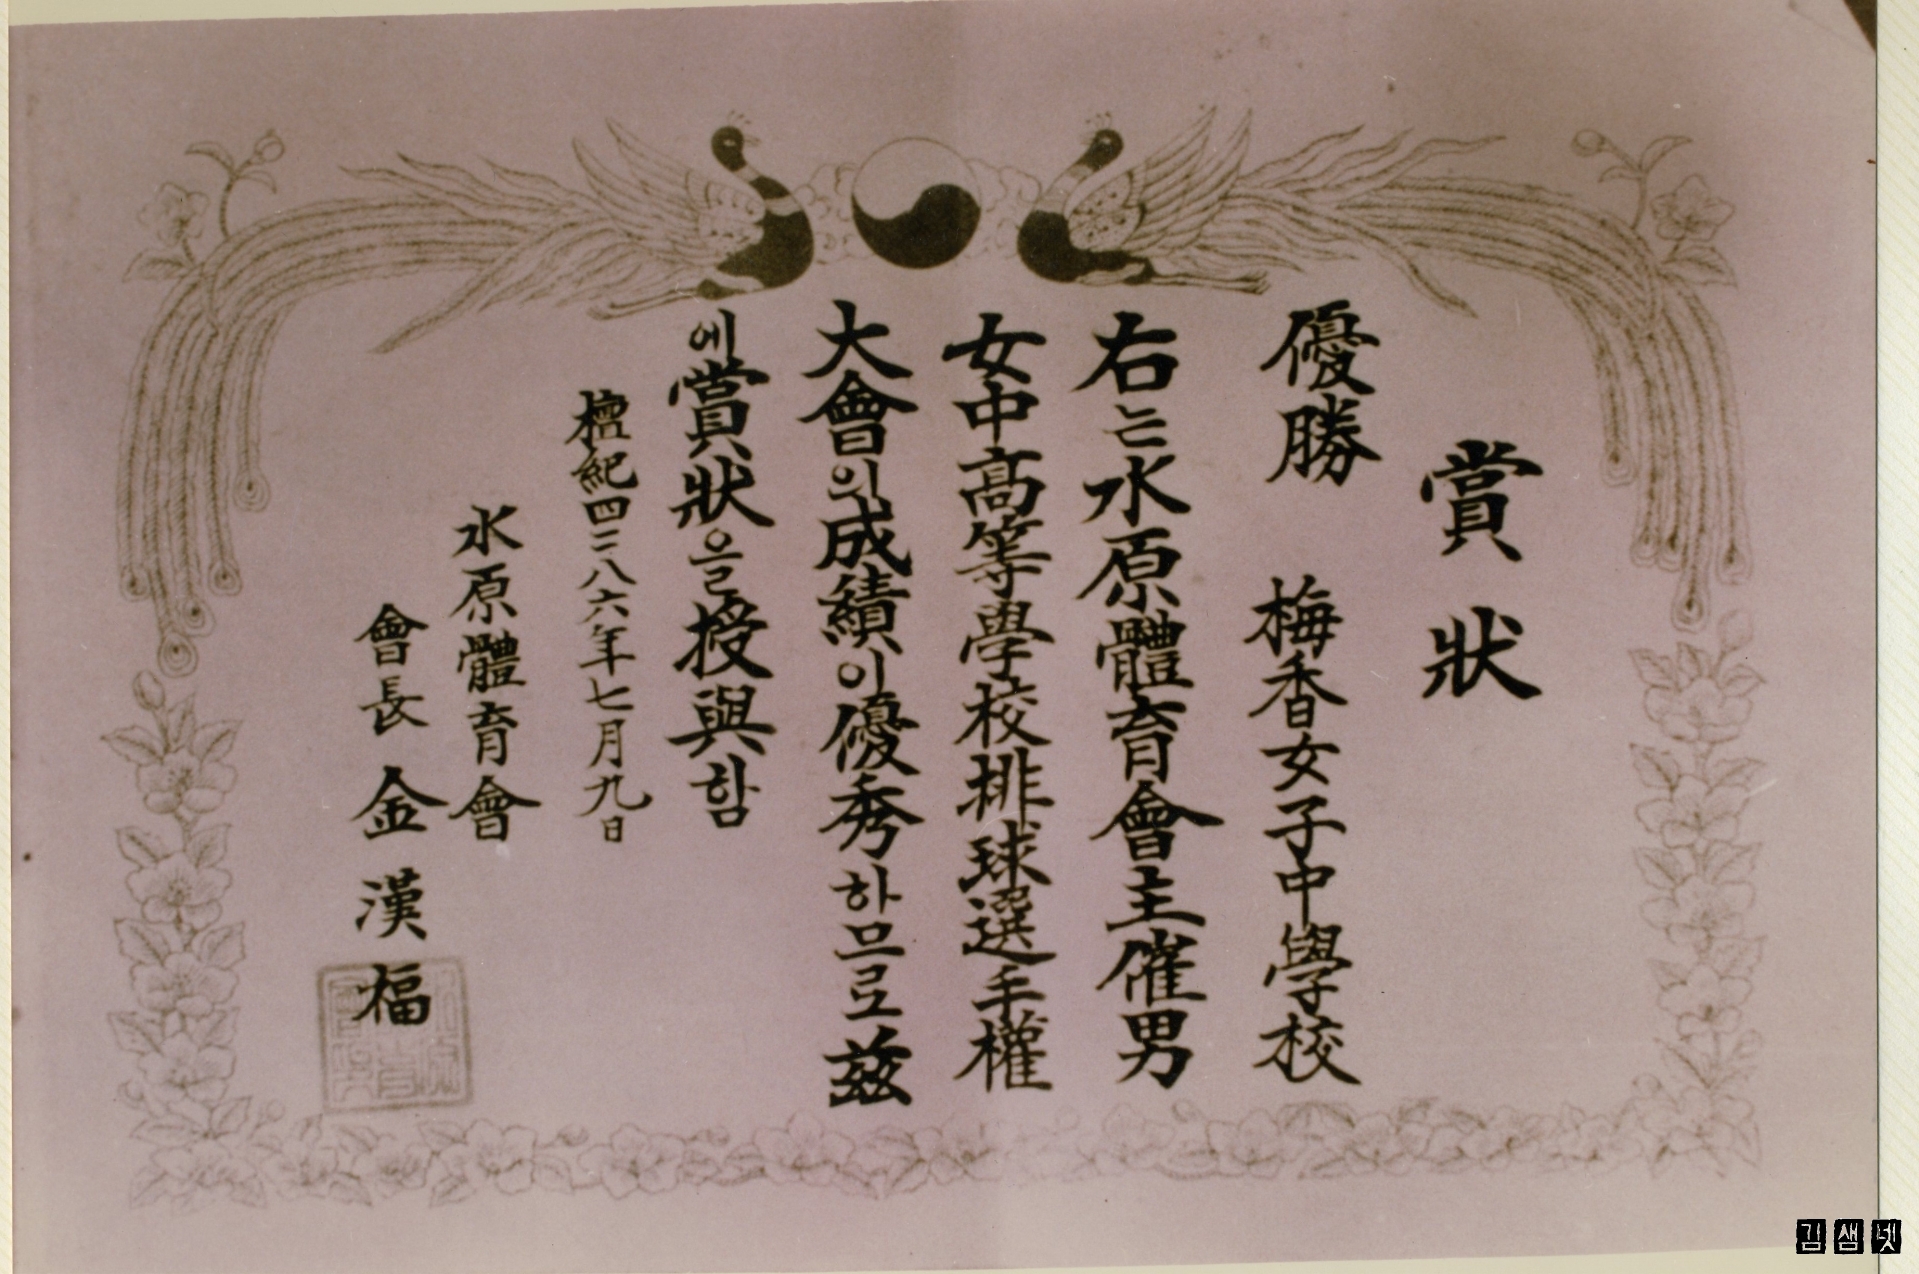 賞狀
優勝 梅香女子中學校
右는水原體育會主催男
女中高等學校排球選手權
大會의成績이優秀하므로玆
에賞狀을授與함
檀紀四二八六年七月九日
水原體育會
會長 金漢福
김샘넷